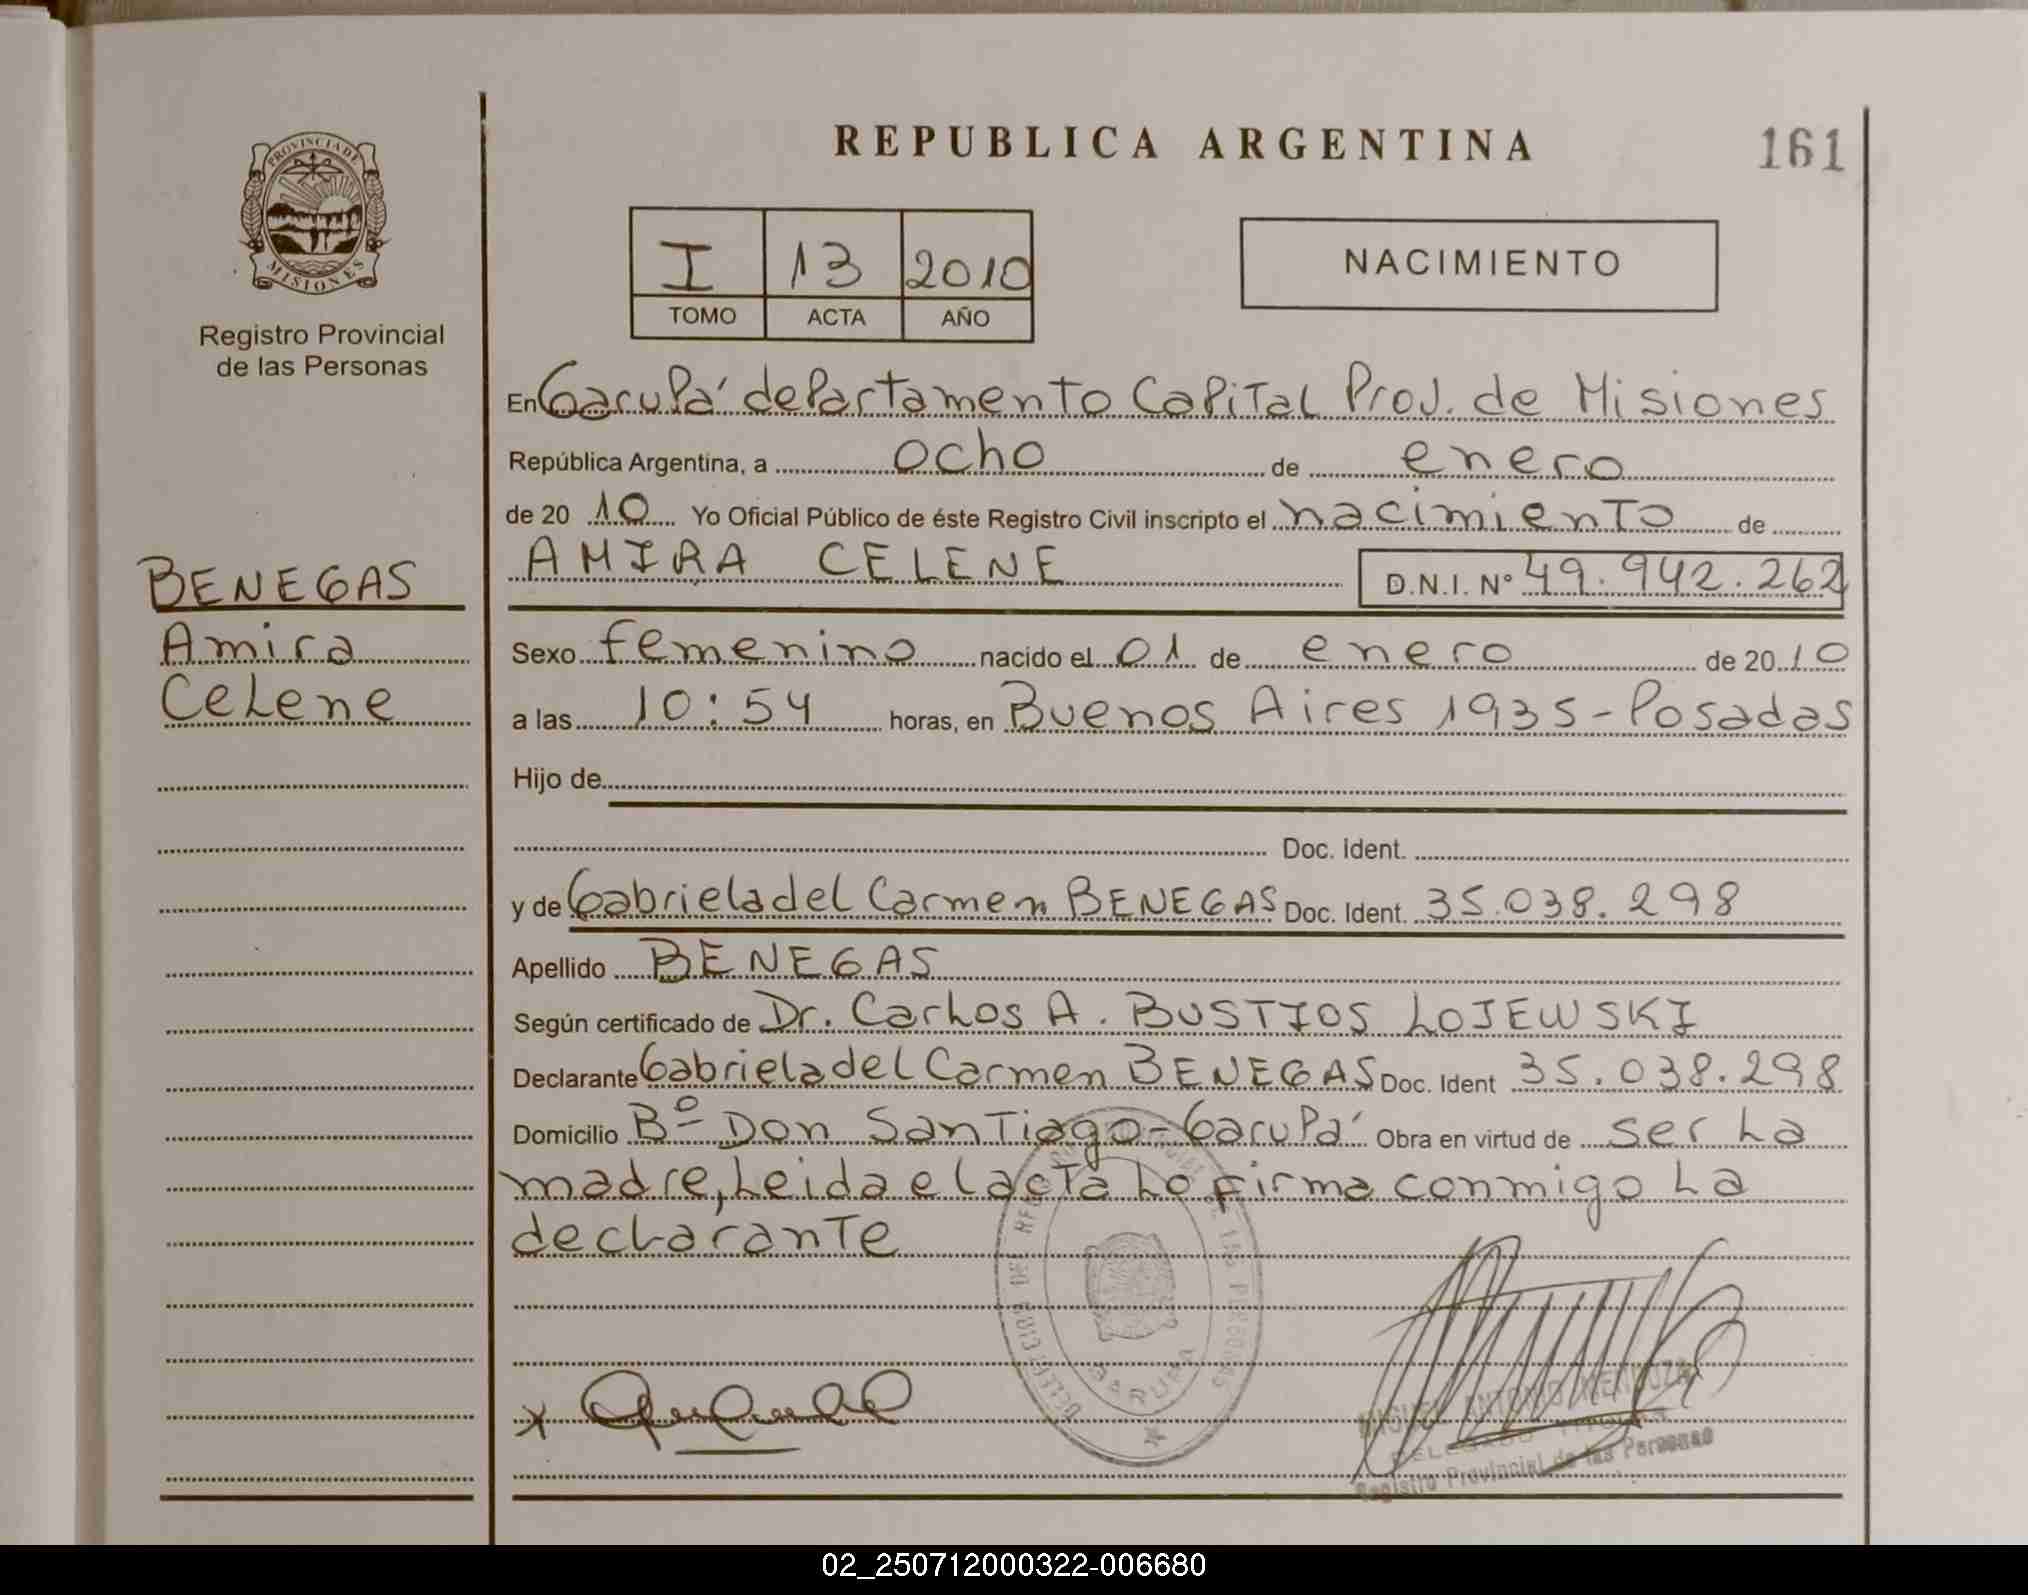 REPUBLICA ARGENTINA
161
PROVINCIA DE
MISIONES
Registro Provincial
de las Personas
I 13 2010
TOMO ACTA AÑO
NACIMIENTO
En Garupá departamento Capital Prov. de Misiones
República Argentina, a ocho de enero
de 2010 Yo Oficial Público de éste Registro Civil inscripto el nacimiento de
AMIRA CELENE D.N.I. Nº 49.942.262
BENEGAS
Amira
Celene
Sexo femenino nacido el 01 de enero de 2010
a las 10:54 horas, en Buenos Aires 1935 - Posadas
Hijo de
Doc. Ident.
y de Gabriela del Carmen BENEGAS Doc. Ident. 35.038.298
Apellido BENEGAS
Según certificado de Dr. Carlos A. BUSTIOS LOJEWSKI
Declarante Gabriela del Carmen BENEGAS Doc. Ident 35.038.298
Domicilio Bº Don Santiago - Garupá Obra en virtud de ser la
madre, Leida el acta lo firma conmigo la
declarante
GARUPA
MIGUEL ANTONIO MENDOZA
DELEGADO TITULAR
Registro Provincial de las Personas
02_250712000322-006680